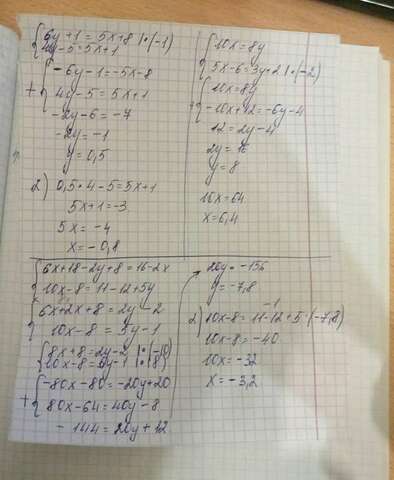 6y + 1 = 5x + 8 | · (-1)
4y - 5 = 5x + 1
-6y - 1 = -5x - 8
+ 4y - 5 = 5x + 1
-2y - 6 = -7
-2y = -1
y = 0,5
2) 0,5 · 4 - 5 = 5x + 1
5x + 1 = -3
5x = -4
x = -0,8
10x = 8y
5x - 6 = 3y + 2 | · (-2)
10x = 8y
+ -10x + 12 = -6y - 4
12 = 2y - 4
2y = 16
y = 8
10x = 64
x = 6,4
6x + 18 - 2y + 8 = 16 - 2x
10x - 8 = 11 - 12 + 5y
6x + 2x + 8 = 2y - 2
10x - 8 = 5y - 1
8x + 8 = 2y - 2 | · (-10)
10x - 8 = 5y - 1 | · (8)
-80x - 80 = -20y + 20
+ 80x - 64 = 40y - 8
-144 = 20y + 12
20y = -156
y = -7,8
-1
2) 10x - 8 = 11 - 12 + 5 · (-7,8)
10x - 8 = -40
10x = -32
x = -3,2